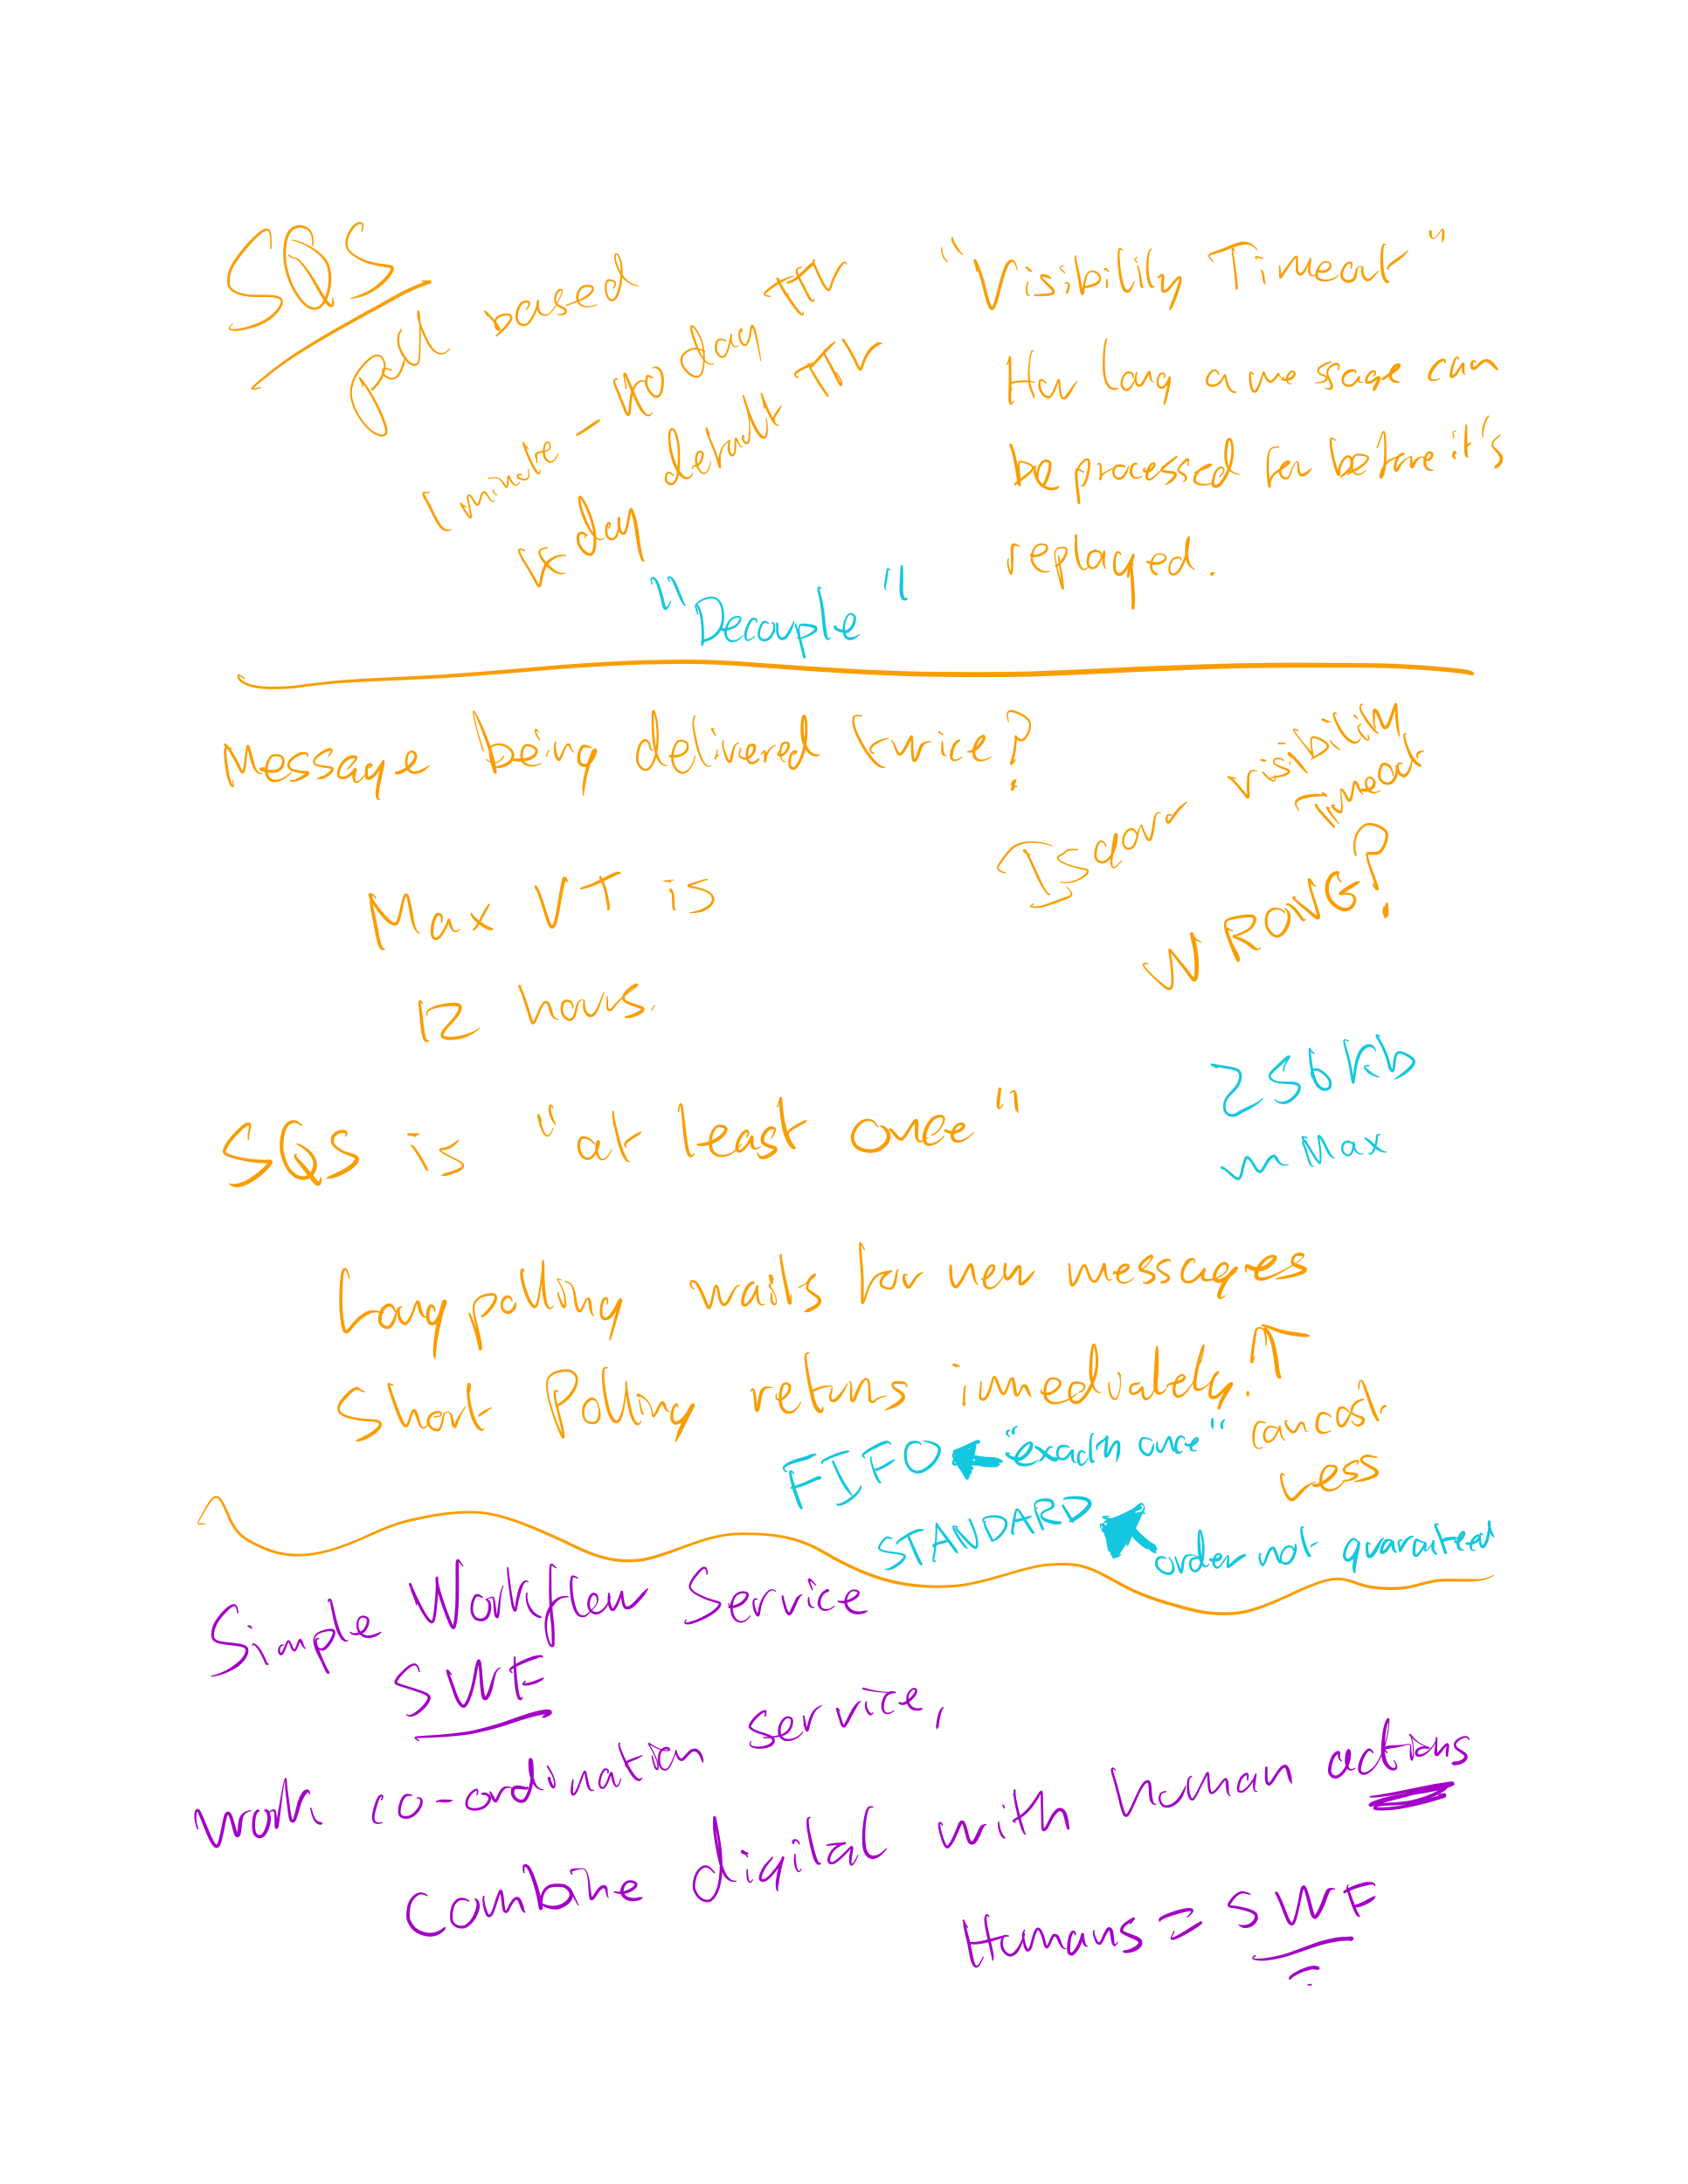 SQS
pull based
1 minute - day TTL
day default TTL
"Visibility Timeout"
How long a message can
be processed for before it's
replayed.
"Decouple"
Message being delivered twice?
Is your visibility
Timeout
WRONG?
Max VT is
12 hours.
SQS is "at least once"
256Kb
Max
Long polling waits for new messages
Short Polling returns immediately. ↑
costs
Less
FIFO ← "exactly once"
STANDARD ← order not guaranteed
Simple Workflow Service
SWF
work co-ordination service,
combine digital with human actions
Humans = SWF